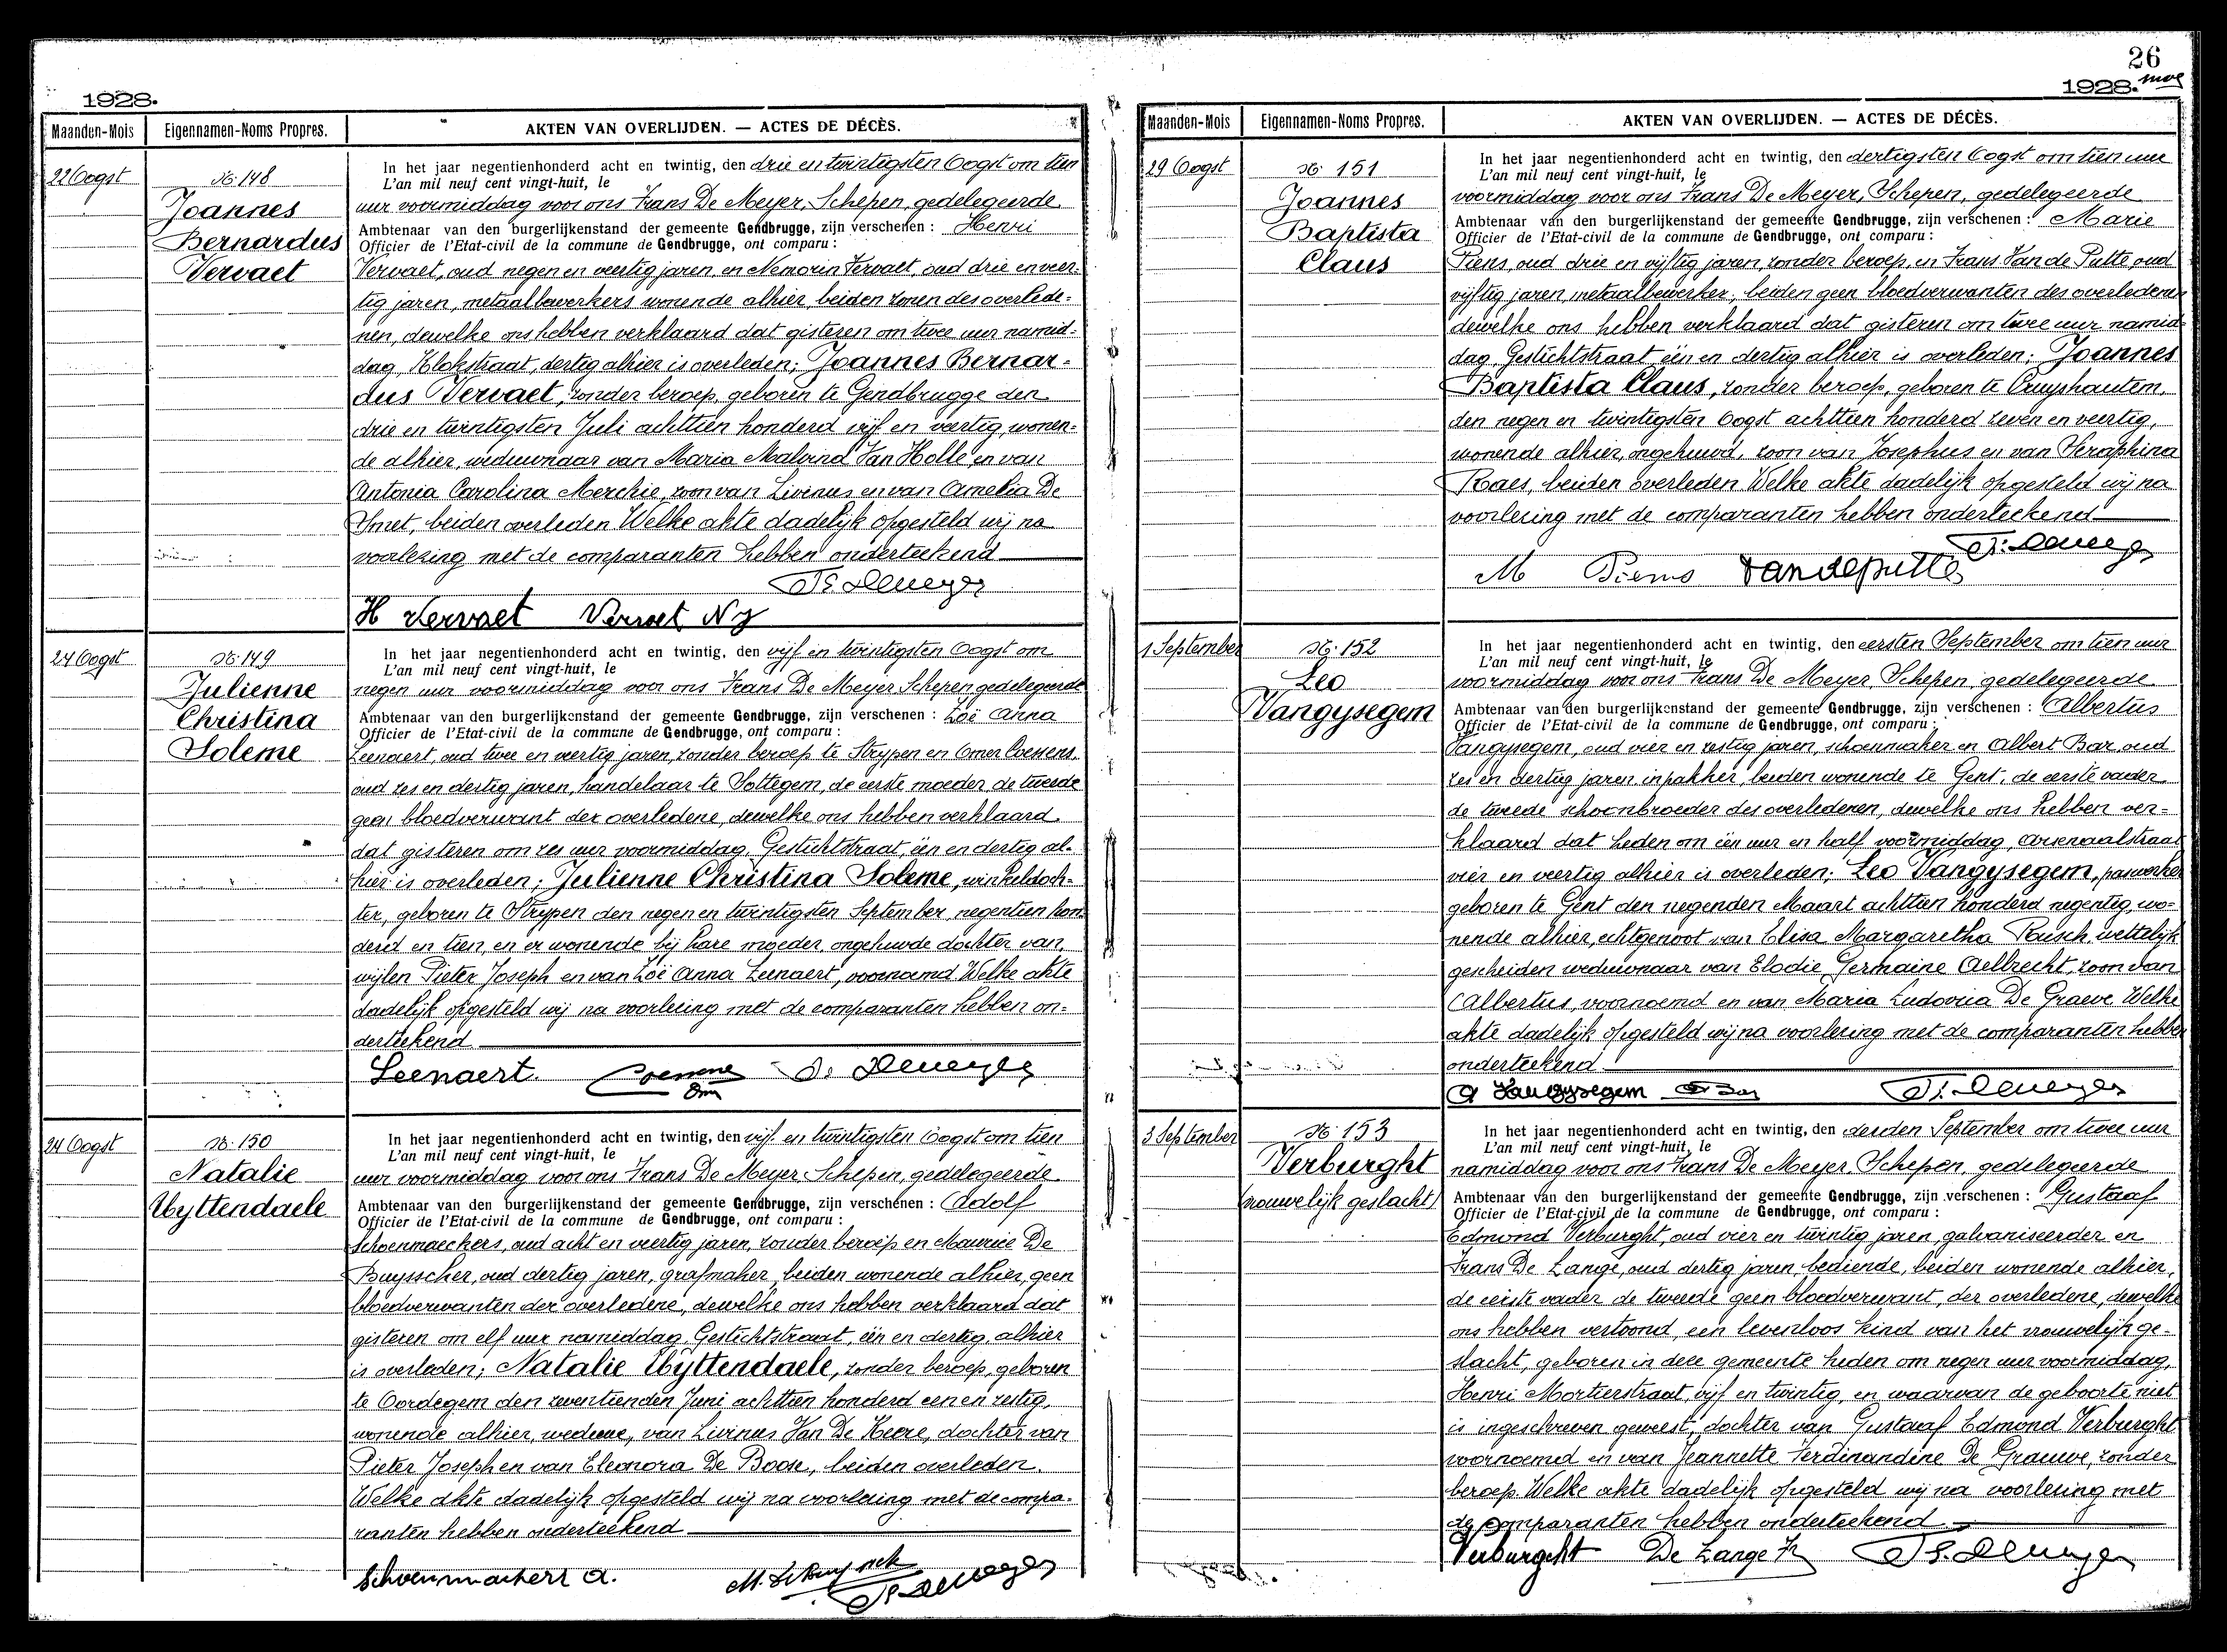 1928.
Maanden-Mois Eigennamen-Noms Propres. AKTEN VAN OVERLIJDEN. — ACTES DE DÉCÈS.
22 Oogst
No 148
Joannes
Bernardus
Vervaet
In het jaar negentienhonderd acht en twintig, den drie en twintigsten Oogst om tien
L'an mil neuf cent vingt-huit, le
uur voormiddag voor ons Frans De Meyer, Schepen, gedelegeerde
Ambtenaar van den burgerlijkenstand der gemeente Gendbrugge, zijn verschenen : Henri
Officier de l'Etat-civil de la commune de Gendbrugge, ont comparu :
Vervaet, oud negen en veertig jaren, en Nemorin Vervaet, oud drie en veer-
tig jaren, metaalbewerkers wonende alhier, beiden zonen des overlede-
nen, dewelke ons hebben verklaard dat gisteren om twee uur namid-
dag, Klokstraat, dertig alhier is overleden; Joannes Bernar-
dus Vervaet, zonder beroep, geboren te Gendbrugge den
drie en twintigsten Juli achttien honderd vijf en veertig, wonen-
de alhier, weduwnaar van Maria Malvina Van Holle en van
Antonia Carolina Merchie, zoon van Livinus en van Amelia De
Smet, beiden overleden. Welke akte dadelijk opgesteld wij na
voorlezing met de comparanten hebben onderteekend
Fr. Demeyer
H Vervaet Vervaet
24 Oogst
No 149
Julienne
Christina
Soleme
In het jaar negentienhonderd acht en twintig, den vijf en twintigsten Oogst om
L'an mil neuf cent vingt-huit, le
negen uur voormiddag voor ons Frans De Meyer Schepen gedelegeerde
Ambtenaar van den burgerlijkenstand der gemeente Gendbrugge, zijn verschenen : Zoë Anna
Officier de l'Etat-civil de la commune de Gendbrugge, ont comparu :
Leenaert, oud twee en veertig jaren, zonder beroep te Strypen en Omer Coessens,
oud zes en dertig jaren, handelaar te Sottegem, de eerste moeder de tweede
geen bloedverwant der overledene, dewelke ons hebben verklaard
dat gisteren om zes uur voormiddag, Gestichtstraat, één en dertig al-
hier is overleden; Julienne Christina Soleme, winkeldoch-
ter, geboren te Strypen den negen en twintigsten September, negentien hon-
derd en tien, en er wonende bij hare moeder, ongehuwde dochter van
wijlen Pieter Joseph en van Zoë Anna Leenaert, voornamd. Welke akte
dadelijk opgesteld wij na voorlezing met de comparanten hebben on-
derteekend
Leenaert. Coessens Fr. Demeyer
24 Oogst
No 150
Natalie
Uyttendaele
In het jaar negentienhonderd acht en twintig, den vijf en twintigsten Oogst om tien
L'an mil neuf cent vingt-huit, le
uur voormiddag voor ons Frans De Meyer Schepen, gedelegeerde
Ambtenaar van den burgerlijkenstand der gemeente Gendbrugge, zijn verschenen : Adolf
Officier de l'Etat-civil de la commune de Gendbrugge, ont comparu :
Schoenmaeckers, oud acht en veertig jaren, zonder beroep en Maurice De
Buysscher, oud dertig jaren, grafmaker, beiden wonende alhier, geen
bloedverwanten der overledene, dewelke ons hebben verklaard dat
gisteren om elf uur namiddag, Gestichtstraat, één en dertig, alhier
is overleden; Natalie Uyttendaele, zonder beroep, geboren
te Oordegem den zeventienden Juni achttien honderd een en zestig,
wonende alhier, weduwe, van Livinus Van De Keere, dochter van
Pieter Joseph en van Eleonora De Boose, beiden overleden.
Welke akte dadelijk opgesteld wij na voorlezing met de compa-
ranten hebben onderteekend
Schoenmackers A. Fr. Demeyer
26
1928.
Maanden-Mois Eigennamen-Noms Propres. AKTEN VAN OVERLIJDEN. — ACTES DE DÉCÈS.
29 Oogst
No 151
Joannes
Baptista
Claus
In het jaar negentienhonderd acht en twintig, den dertigsten Oogst om tien uur
L'an mil neuf cent vingt-huit, le
voormiddag voor ons Frans De Meyer, Schepen, gedelegeerde
Ambtenaar van den burgerlijkenstand der gemeente Gendbrugge, zijn verschenen : Marie
Officier de l'Etat-civil de la commune de Gendbrugge, ont comparu :
Piens, oud drie en vijftig jaren, zonder beroep, en Frans Van de Putte, oud
vijftig jaren, metaalbewerker, beiden geen bloedverwanten des overledenen
dewelke ons hebben verklaard dat gisteren om twee uur namid-
dag, Gestichtstraat, één en dertig alhier is overleden; Joannes
Baptista Claus, zonder beroep, geboren te Cruyshautem,
den negen en twintigsten Oogst achttien honderd zeven en veertig,
wonende alhier, ongehuwd, zoon van Josephus en van Seraphina
Raes, beiden overleden Welke akte dadelijk opgesteld wij na
voorlezing met de comparanten hebben onderteekend
Fr. Demeyer
M Piens Vandeputte
1 September
No 152
Leo
Vangysegem
In het jaar negentienhonderd acht en twintig, den eersten September om tien uur
L'an mil neuf cent vingt-huit, le
voormiddag voor ons Frans De Meyer, Schepen, gedelegeerde
Ambtenaar van den burgerlijkenstand der gemeente Gendbrugge, zijn verschenen : Albertus
Officier de l'Etat-civil de la commune de Gendbrugge, ont comparu :
Vangysegem, oud vier en zestig jaren, schoenmaker en Albert Bar, oud
zes en dertig jaren, inpakker, beiden wonende te Gent, de eerste vader,
de tweede schoonbroeder des overledenen, dewelke ons hebben ver-
klaard dat heden om één uur en half voormiddag, Arsenaalstraat
vier en veertig alhier is overleden; Leo Vangysegem,
geboren te Gent den negenden Maart achttien honderd negentig, wo-
nende alhier, echtgenoot van Elisa Margaretha Rasch, wettelijk
gescheiden weduwnaar van Elodie Germaine Aelbrecht, zoon van
Albertus, voornoemd en van Maria Ludovica De Graeve. Welke
akte dadelijk opgesteld wij na voorlezing met de comparanten hebben
onderteekend
A Vangysegem A Bar Fr. Demeyer
3 September
No 153
Verburght
(vrouwelijk geslacht)
In het jaar negentienhonderd acht en twintig, den derden September om twee uur
L'an mil neuf cent vingt-huit, le
namiddag voor ons Frans De Meyer, Schepen, gedelegeerde
Ambtenaar van den burgerlijkenstand der gemeente Gendbrugge, zijn verschenen : Gustaaf
Officier de l'Etat-civil de la commune de Gendbrugge, ont comparu :
Edmond Verburght, oud vier en twintig jaren, galvaniseerder en
Frans De Lange, oud dertig jaren, bediende, beiden wonende alhier,
de eerste vader de tweede geen bloedverwant, der overledene, dewelke
ons hebben vertoond, een levenloos kind van het vrouwelijk ge-
slacht, geboren in deze gemeente heden om negen uur voormiddag,
Henri Mortierstraat, vijf en twintig, en waarvan de geboorte niet
is ingeschreven geweest, dochter van Gustaaf Edmond Verburght
voornoemd en van Jeannette Ferdinandine De Grauwe, zonder
beroep. Welke akte dadelijk opgesteld wij na voorlezing met
de comparanten hebben onderteekend
Verburght De Lange Fr Fr. Demeyer